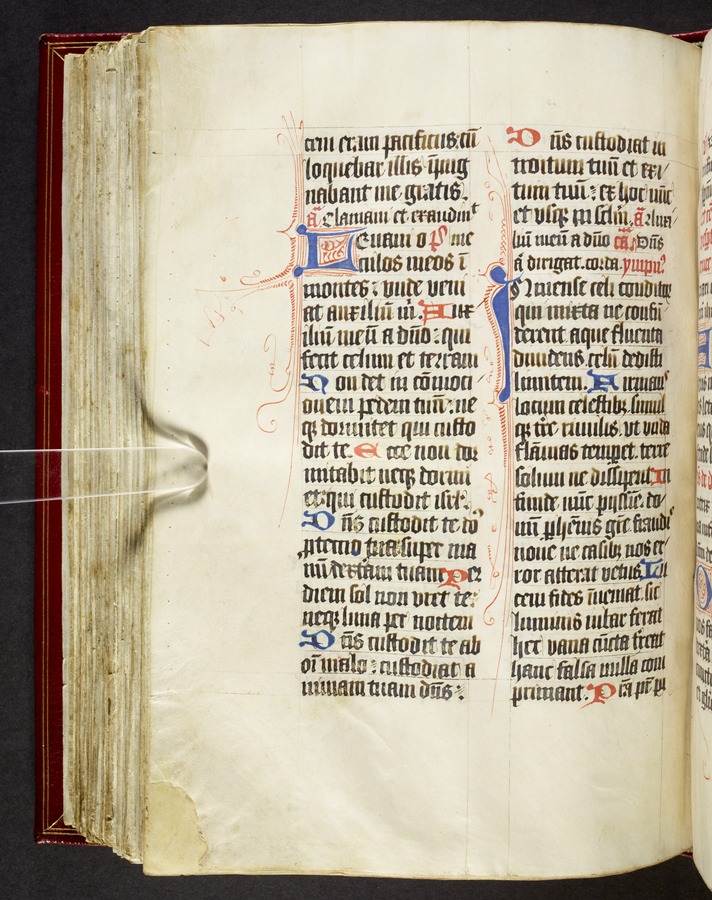 cem eram pacificus: cū
loquebar illis īpug
nabant me gratis.
ā Clamaui et exaudiuit
Leuaui o ps me
culos meos ī
montes: vnde veni
at auxiliū m̄. Aux
iliū meū a dn̄o: qui
fecit celum et terram
Non det in cōmoti
onem pedem tuū: ne
qȝ dormitet qui custo
dit te. Ecce non dor
mitabit neqȝ dormi
et: qui custodit isrl̄.
Dn̄s custodit te dn̄s
ptectio tua: super ma
nū dexterā tuam Per
diem sol non vret te:
neqȝ luna per noctem
Dn̄s custodit te ab
oī malo: custodiat a
nimam tuam dn̄s:
Dn̄s custodiat in
troitum tuū et exi
tum tuū: ex hoc nūc
et vsqȝ in sclm̄. ā Auxi
liū meū a dn̄o cā. ā Dn̄s
ā dirigat. corda. ympn̄.
Inmense celi conditor
qui mixta ne confū
derent aque fluenta
diuidens celū dedisti
limitem. Firmans
locum celestibȝ simul
qȝ tr̄e riuulis. vt vnda
flāmas temperet terre
solum ne dissipent In
funde nūc pijssime. do
nū perhēnis grē. fraudis
noue ne casibȝ nos er
ror atterat vetus. Lu
cem fides inueniat. sic
luminis iubar ferat
hec vana cūcta terreat
hanc falsa nulla com
primant. Prā pr̄ pi